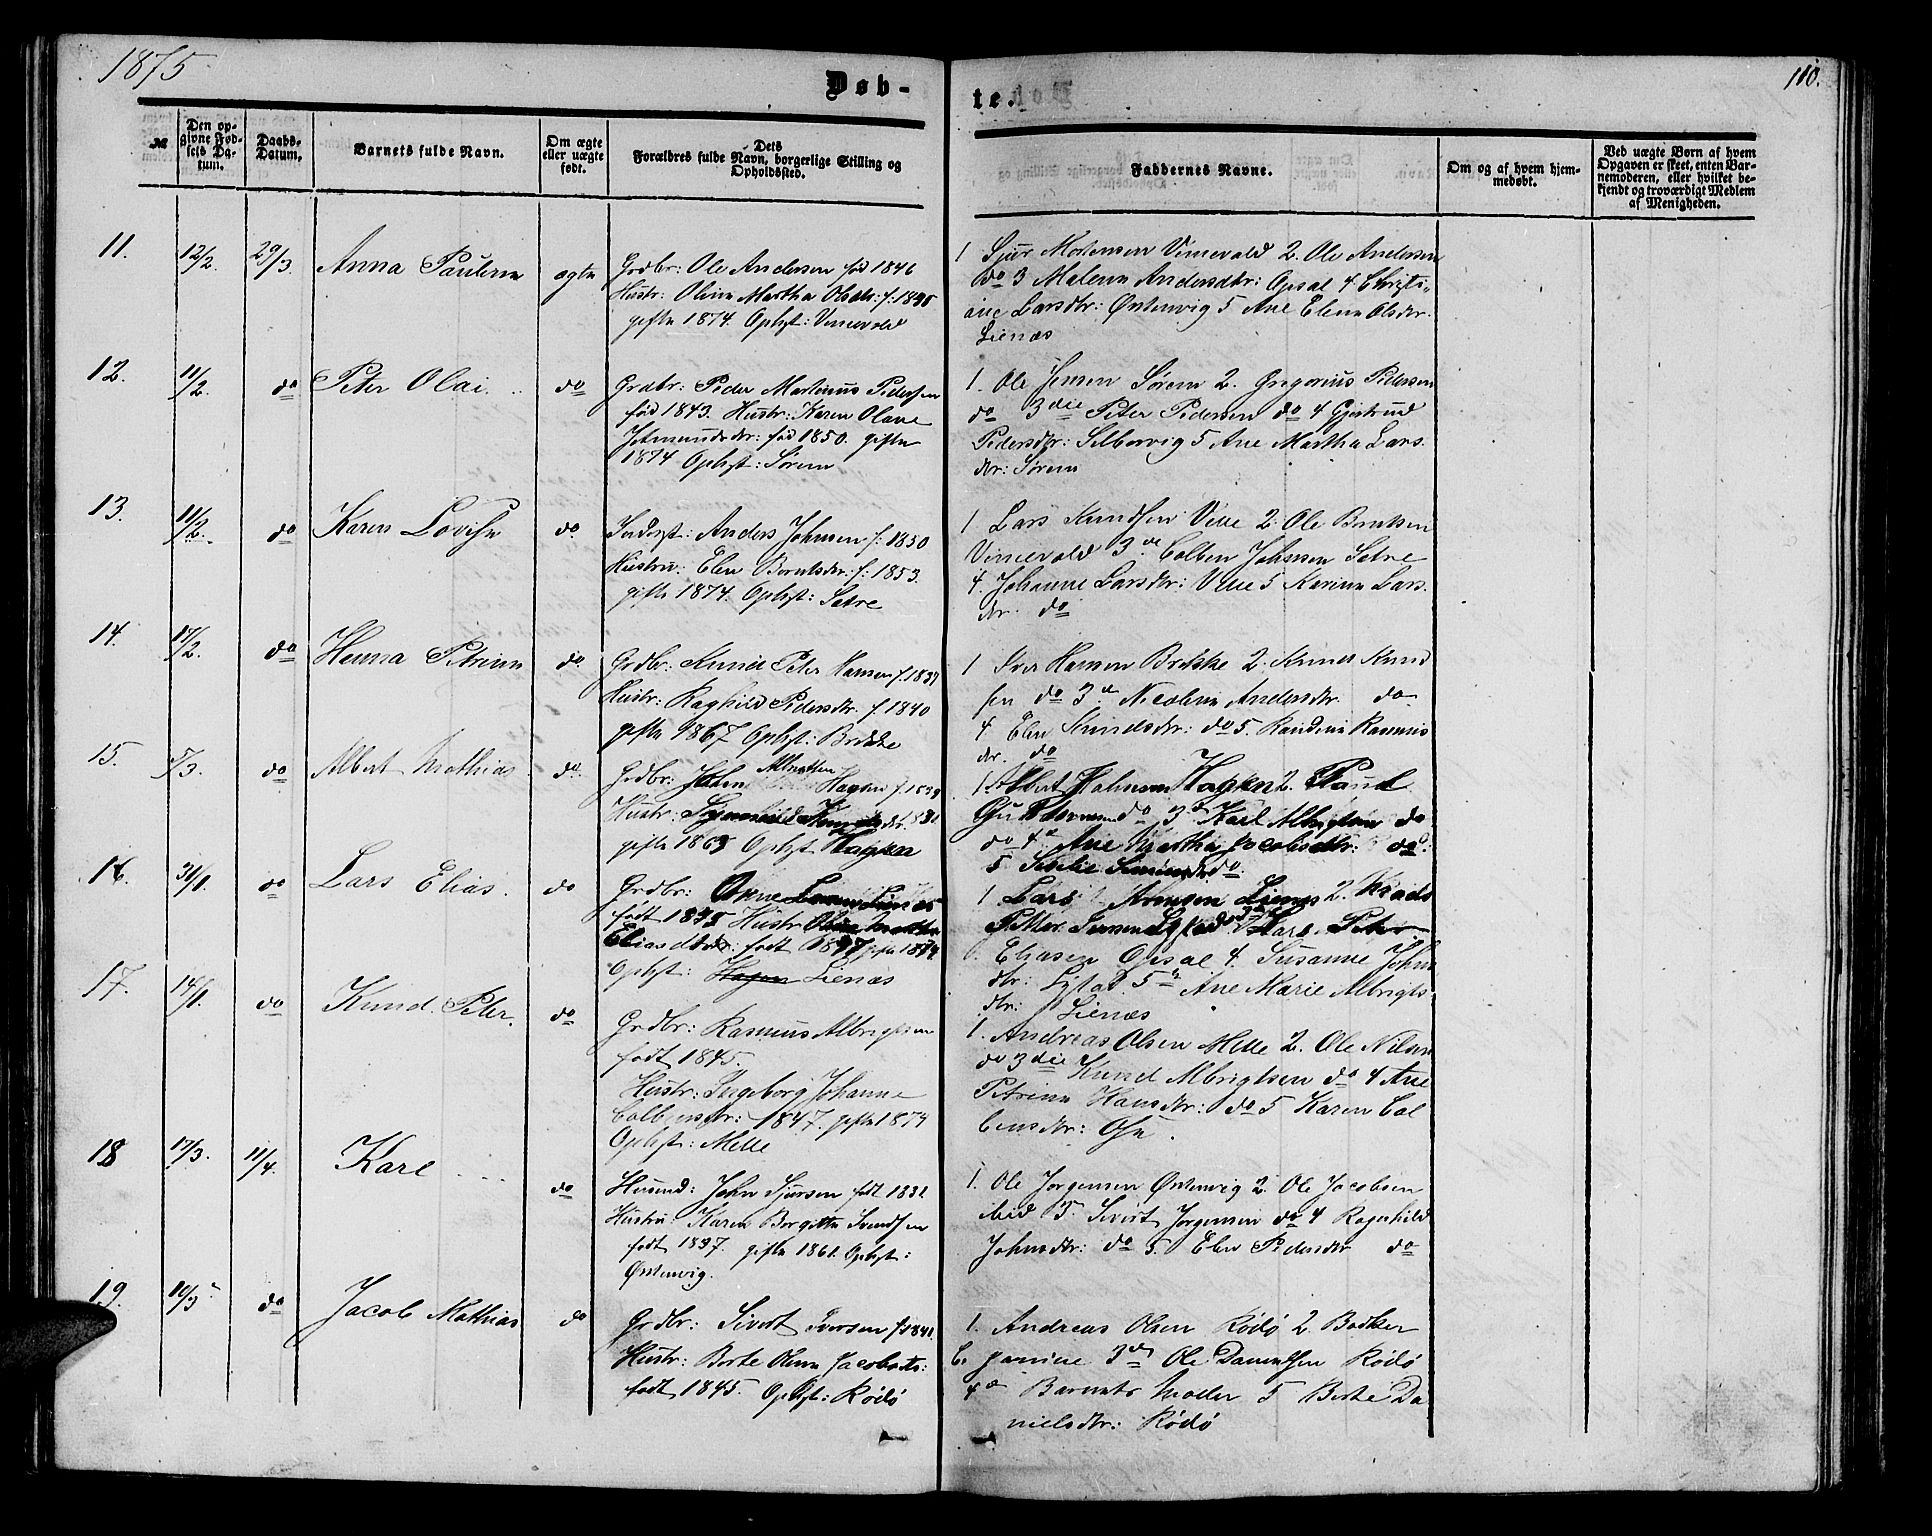 1875
110.
Døb-
te.
№
Den op-
givne Fød-
sels Da-
tum.
Daabs-
Datum.
Barnets fulde Navn.
Om ægte
eller uægte
født.
Dets
Forældres fulde Navn, borgerlige Stilling og
Opholdssted.
Faddernes Navne.
Om og af hvem hjem-
medøbt.
Ved uægte Børn af hvem
Opgaven er skeet, enten Bar-
nemoderen, eller hvilket be-
kjendt og troværdigt Medlem
af Menigheden.
11.
12/2.
29/3.
Anna Paulena
ægte
Grdbr: Ole Andersen fød 1846
Hustr: Oline Martha Olsdtr: f:
gifte 1874. Ophst: Vinnevold
1 Sjur Mortensen Vinnevold 2. Ole Andersen
do 3 Malene Andersdtr: Opsal 4 Christi-
ane Larsdtr: Østenvig 5 Ane Elena Olsdtr.
Lienæs
12.
11/2.
do
Peter Olai.
do
Grdbr: Peder Martinus Pedersen
fød 1843. Hustr: Karen Olave
fød 1850. gifte
1874 Ophst: Sørem
1. Ole Jensen Sørem 2. Gregorius Pedersen
do 3die Peter Pedersen do 4 Gjertrud
Pedersdtr: Selbervig 5 Ane Martha Lars
dtr: Sørem
13.
11/2.
do
Karen Lovise
do
Inderst: Anders Johnsen f: 1850
Hustru: Elen Berntsdtr: f: 1853.
gifte 1874. Ophst: Setre
1 Lars Knudsen Velle 2. Ole Berntsen
Vinnevold 3de Colben Johnsen Setre
4. Johanne Larsdtr: Velle 5 Karina Lars.
dtr. do
14.
17/2.
do
Henna Petrina
do.
Grdbr: Knud Peter Hansen f. 1837
Hustr: Raghild Pedersdtr. f. 1840
gifte 1867 Ophst: Brekke
1 Iver Hansen Brekke 2. Knud Knud
sen do 3d Nicolina Andersdtr. do
4 Elen Knudsdtr: do 5. Randina Rasmus
dtr. do
15.
5/3.
do
Albert Mathias
do.
Grdbr: John Albretsen Hagen f. 1839
Hustr:
gifte 1863 Ophst Hagen
1 Albert Johnsen Hagen 2. Paul
do 3d Karl Albrigtsen do
do 4d Ane Martha Jacobsdtr: do
5 do
16.
31/1.
do
Lars Elias.
do
Grdbr: Arne Larsen Lienæs
født 1835 Hustr Oline Martha
Eliasdtr: født 1837 gifte 1874
Ophst: Hagen Lienæs
1 Lars Arnesen Lienæs 2. Knud
Petter 3die Lars Peter
Eliasen Opsal 4. Susanne Johns
dtr: 5te Ane Marie Albrigts-
dtr: Lienæs
17.
14/1.
do
Knud. Peter.
do
Grdbr: Rasmus Albrigtsen
født 1845.
Hustr: Ingeborg Johanne
Colbensdtr: 1847. gifte 1874
Ophst: Melle
1. Andreas Olsen Melle 2. Ole Nilsen
do 3die Knud Albrigtsen do 4 Ane
Petrina Hansdtr: do 5 Karen Col
bensdtr: Ose.
18
17/3.
11/4.
Karl
do
Husmd: John Sjursen født 1832
Hustru: Karen Borgitta
født 1837. gifte 1861. Ophst:
Østenvig.
1. Ole Jørgensen Østenvig 2. Ole Jacobsen
ibid 3. Sivert Jørgensen do 4 Ragnhild
Johnsdtr: do 5. Elen Pedersdtr do
19.
10/3
do
Jacob Mathias
do
Grdbr: Sivert Iversen f: 1841.
Hustr: Berte Olina Jacobsdtr:
født 1845. Ophst: Rødø
1. Andreas Olsen Rødø 2.
3d Ole Danielsen Rødø
4d Barnets Moder 5 Berte Da
nielsdtr: Rødø